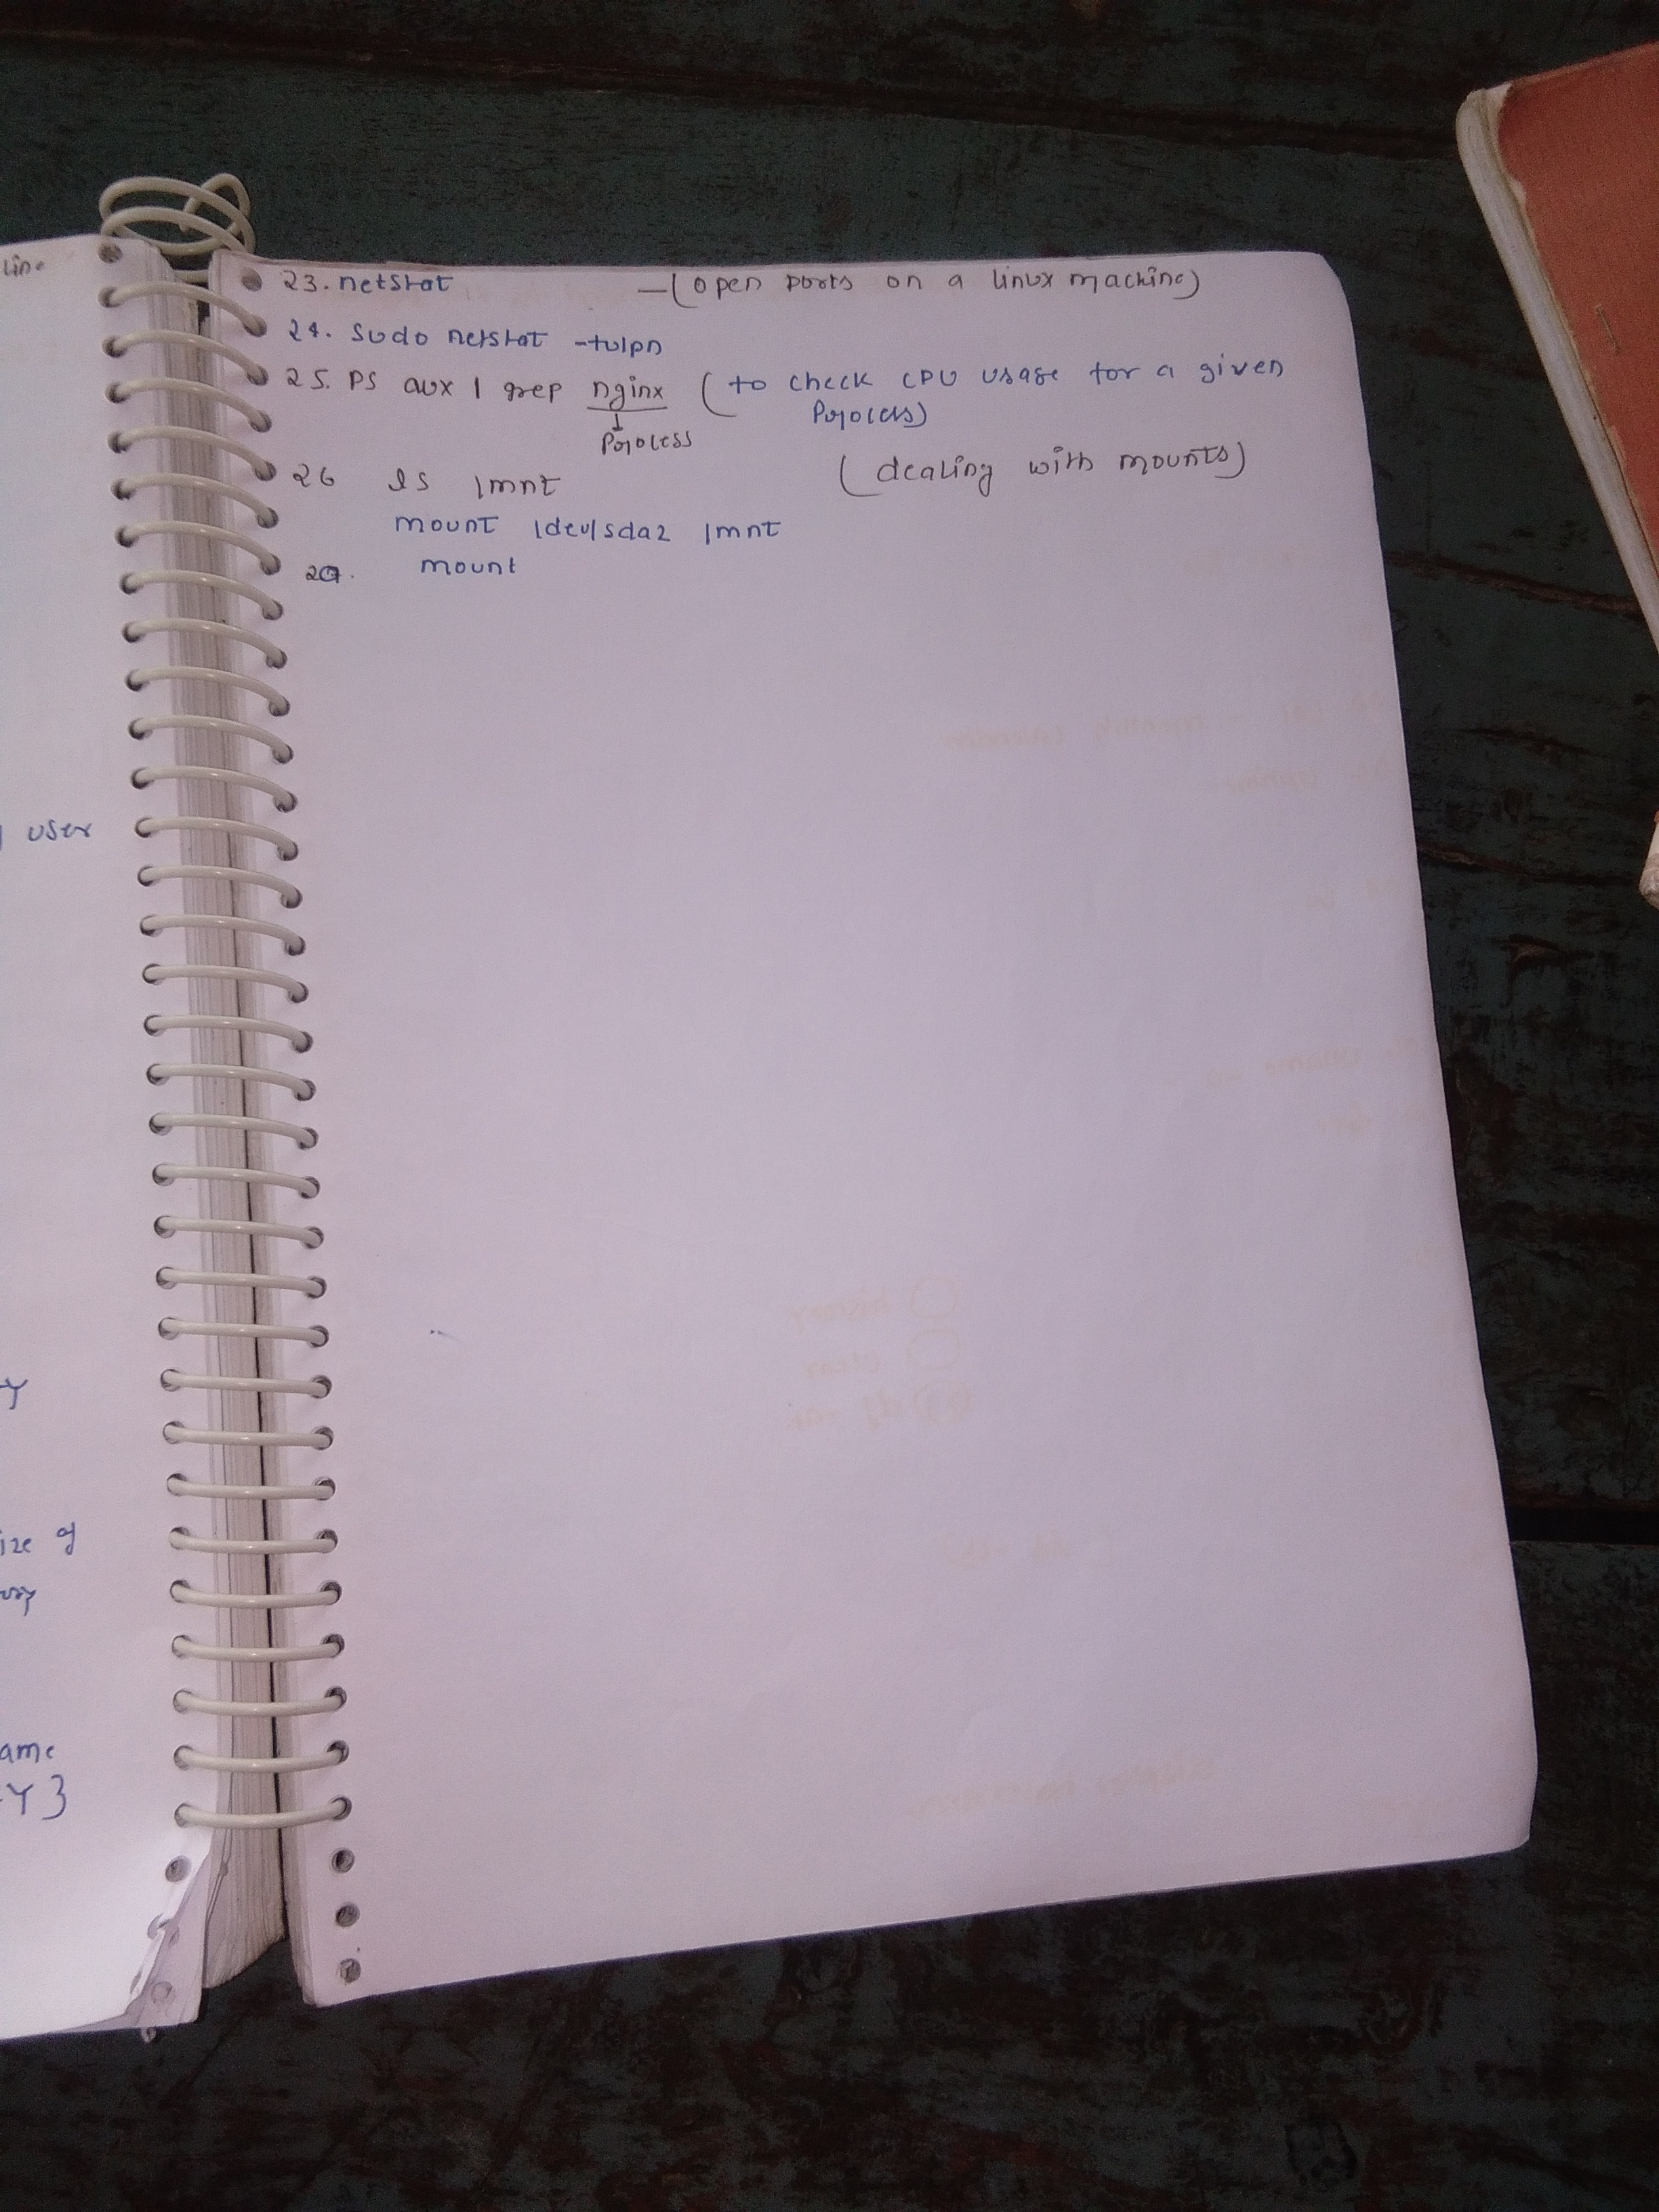 line
user
Y
ize of
ame
Y }
23. netstat — (open ports on a linux machine)
24. sudo netstat -tulpn
25. PS aux | grep nginx (to check CPU usage for a given
Process)
Process
26 ls /mnt (dealing with mounts)
mount /dev/sda2 /mnt
mount